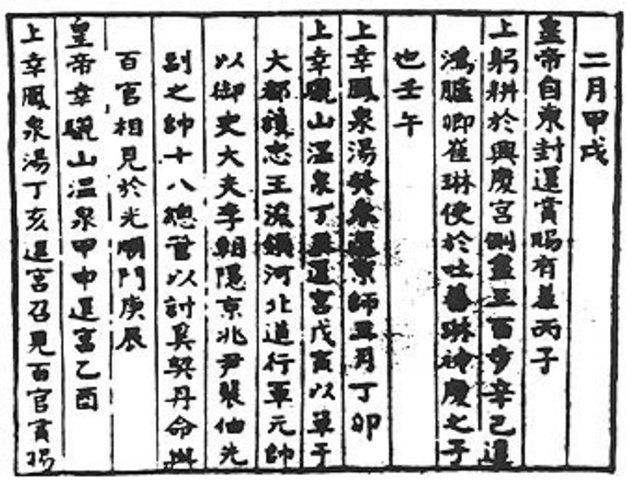 二月甲戌
皇帝自東封還賞賜有差丙子
上躬耕於興慶宮側盡三百步辛己遣
鴻臚卿崔琳使於吐蕃琳神慶之子
也壬午
上幸鳳泉湯癸未還京師月丁卯
上幸驪山温泉丁丑還宮戊寅以單于
大都護忠王浚領河北道行軍元帥
以御史大夫李朝隱京兆尹裴伷先
副之帥十八總管以討奚契丹命與
百官相見於光順門庚辰
皇帝幸驪山温泉甲申還宮乙酉
上幸鳳泉湯丁亥還宮召見百官賞賜